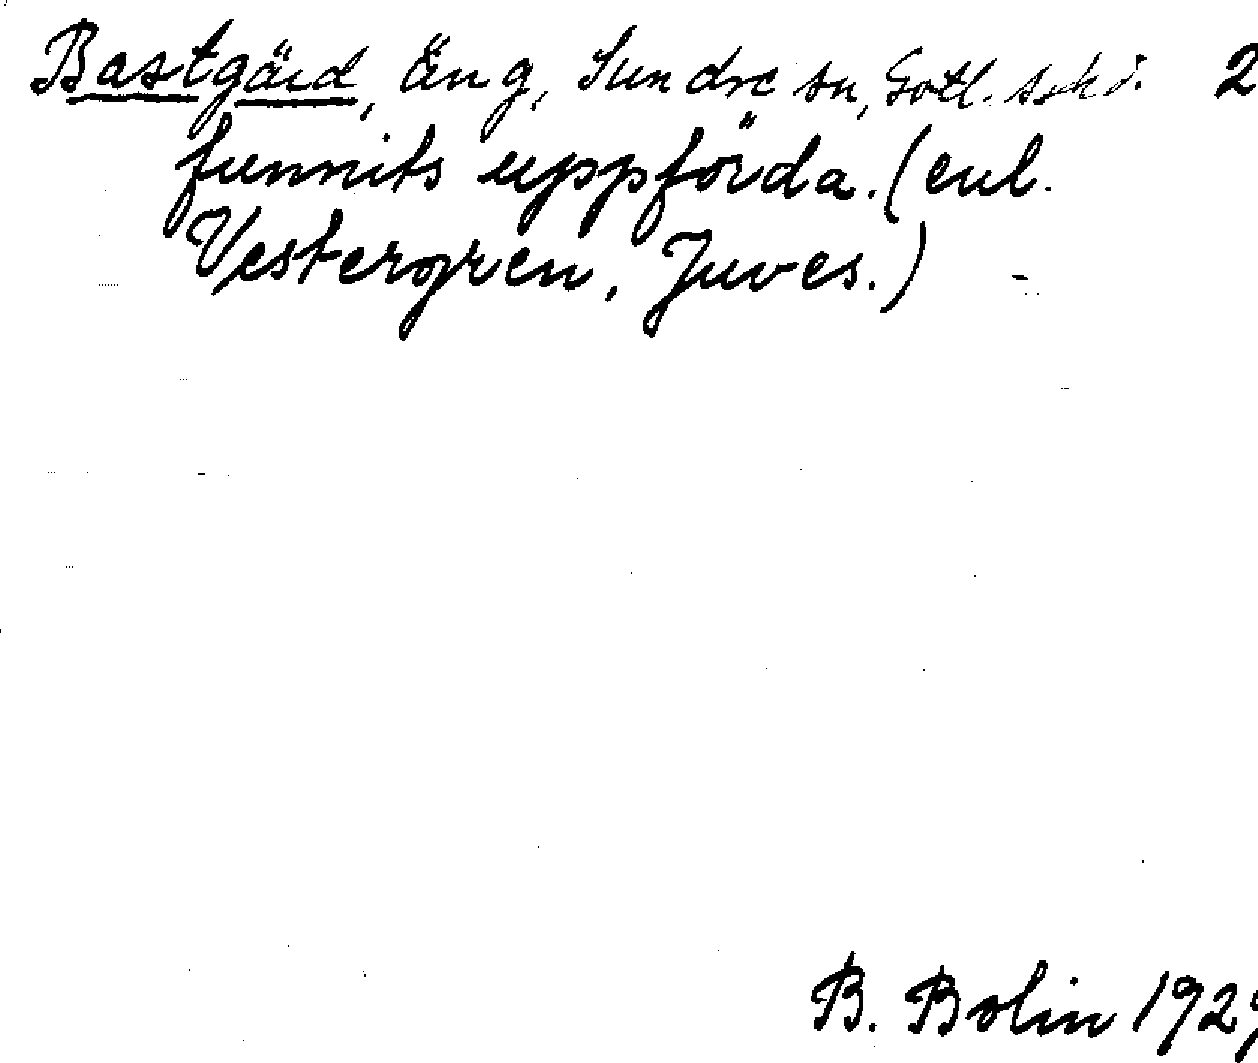 Bastgärd, Äng, Sundre sn, Gotl. 2
funnits uppförda. (enl.
Vestergren, Juves.)
B. Bolin